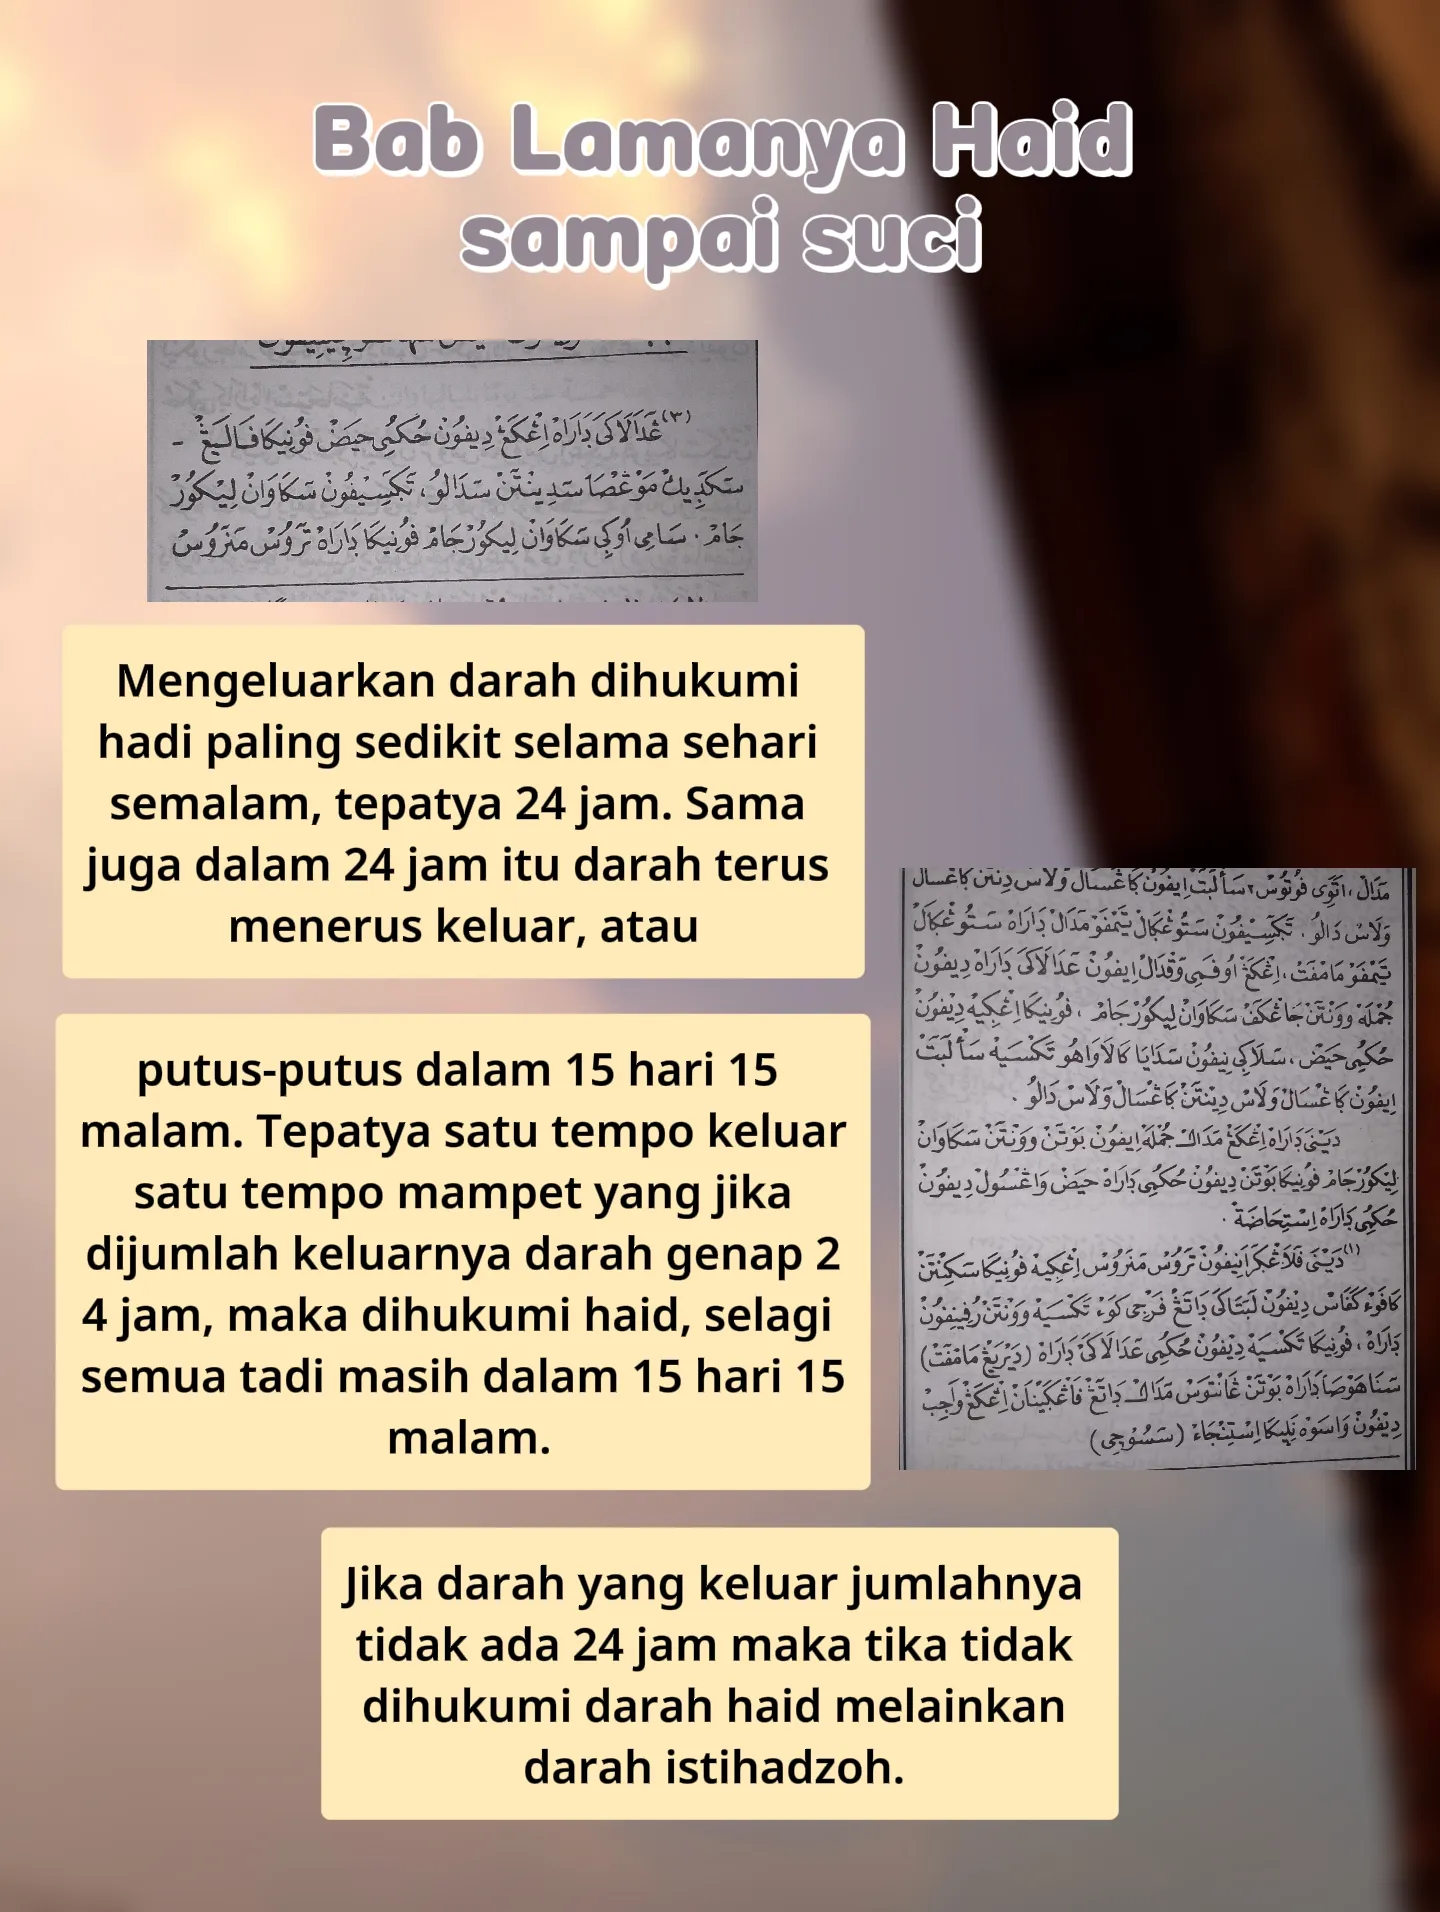 Bab Lamanya Haid
sampai suci
(٣) غَدَالَاكَى دَارَاهْ اِڠْكَڠْ دِيفُونْ حُكُمِى حَيَضْ فُونِيكَا فَالِيڠْ -
سَكَدِيكْ مَوْڠْصَا سَدِينْتَنْ سَدَالُو، تَكَسِيفُونْ سَكَاوَانْ لِيكُورْ
جَامْ. سَامِى اُوكِى سَكَاوَانْ لِيكُورْ جَامْ فُونِيكَا دَارَاهْ تَرُوسْ مَنَرُوسْ
Mengeluarkan darah dihukumi
hadi paling sedikit selama sehari
semalam, tepatya 24 jam. Sama
juga dalam 24 jam itu darah terus
menerus keluar, atau
putus-putus dalam 15 hari 15
malam. Tepatya satu tempo keluar
satu tempo mampet yang jika
dijumlah keluarnya darah genap 2
4 jam, maka dihukumi haid, selagi
semua tadi masih dalam 15 hari 15
malam.
مَدَالْ، اَتَوِى فُوتُوس٢ سَأْلَبَتْ اِيفُونْ كَاڠْسَالْ وَلَاسْ دِنْتَنْ كَاڠْسَالْ
وَلَاسْ دَالُو. تَكَسِيفُونْ سَتُوڠْكَالْ تَيمْفَوْ مَدَالْ دَارَاهْ سَتُوڠْكَالْ
تَيمْفَوْ مَامْفَتْ، اِڠْكَڠْ اُوفَمِى وَقْدَالْ اِيفُونْ غَدَالَاكَى دَارَاهْ دِيفُونْ
جُمْلَهْ وَونْتَنْ جَاڠْكَفْ سَكَاوَانْ لِيكُورْ جَامْ، فُونِيكَا اِڠْكِيهْ دِيفُونْ
حُكُمِى حَيَضْ، سَلَاكِى نِيفُونْ سَدَايَا كَالَاوَاهُو تَكْسَيهْ سَأْلَبَتْ
اِيفُونْ كَاڠْسَالْ وَلَاسْ دِينْتَنْ كَاڠْسَالْ وَلَاسْ دَالُو.
دَينَى دَارَاهْ اِڠْكَڠْ مَدَالْ جُمْلَهْ اِيفُونْ بَوتَنْ وَونْتَنْ سَكَاوَانْ
لِيكُورْ جَامْ فُونِيكَا بَوتَنْ دِيفُونْ حُكُمِى دَارَاهْ حَيَضْ وَاڠْسُولْ دِيفُونْ
حُكُمِى دَارَاهْ اِسْتِحَاضَةْ.
(١) دَينَى فَلَاڠْكَرَانِيفُونْ تَرُوسْ مَنَرُوسْ اِڠْكِيهْ فُونِيكَا سَكِنْتَنْ
كَافُوءْ كَفَاسْ دِيفُونْ لَبَتَاكَى دَاتَڠْ فَرْجِى كَوءْ تَكْسَيهْ وَونْتَنْ رُفِينِفُونْ
دَارَاهْ، فُونِيكَا تَكْسَيهْ دِيفُونْ حُكُمِى غَدَالَاكَى دَارَاهْ (دَيرَيڠْ مَامْفَتْ)
سَنَاهَوْصَا دَارَاهْ بَوتَنْ غَانْتَوسْ مَدَالْ دَاتَڠْ فَاڠْكَينَانْ اِڠْكَڠْ وَاجِبْ
دِيفُونْ وَاسَوهْ نَلِيكَا اِسْتِنْجَاءْ (سَسُوجِى)
Jika darah yang keluar jumlahnya
tidak ada 24 jam maka tika tidak
dihukumi darah haid melainkan
darah istihadzoh.